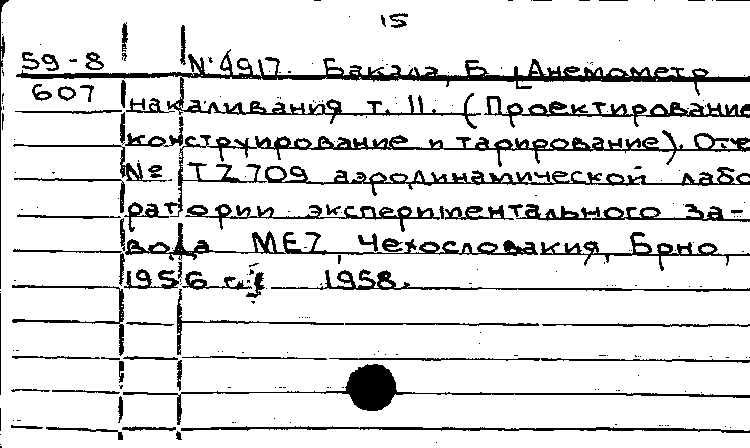 15
59-8 №4917. Бакала, Б. [Анемометр
607 накаливания т. II. (Проектирование
конструирование и тарирование). Отче
№ TZ709 аэродинамической лабо
ратории экспериментального за-
вода МЕZ, Чехословакия, Брно,
1956 г.] 1958.